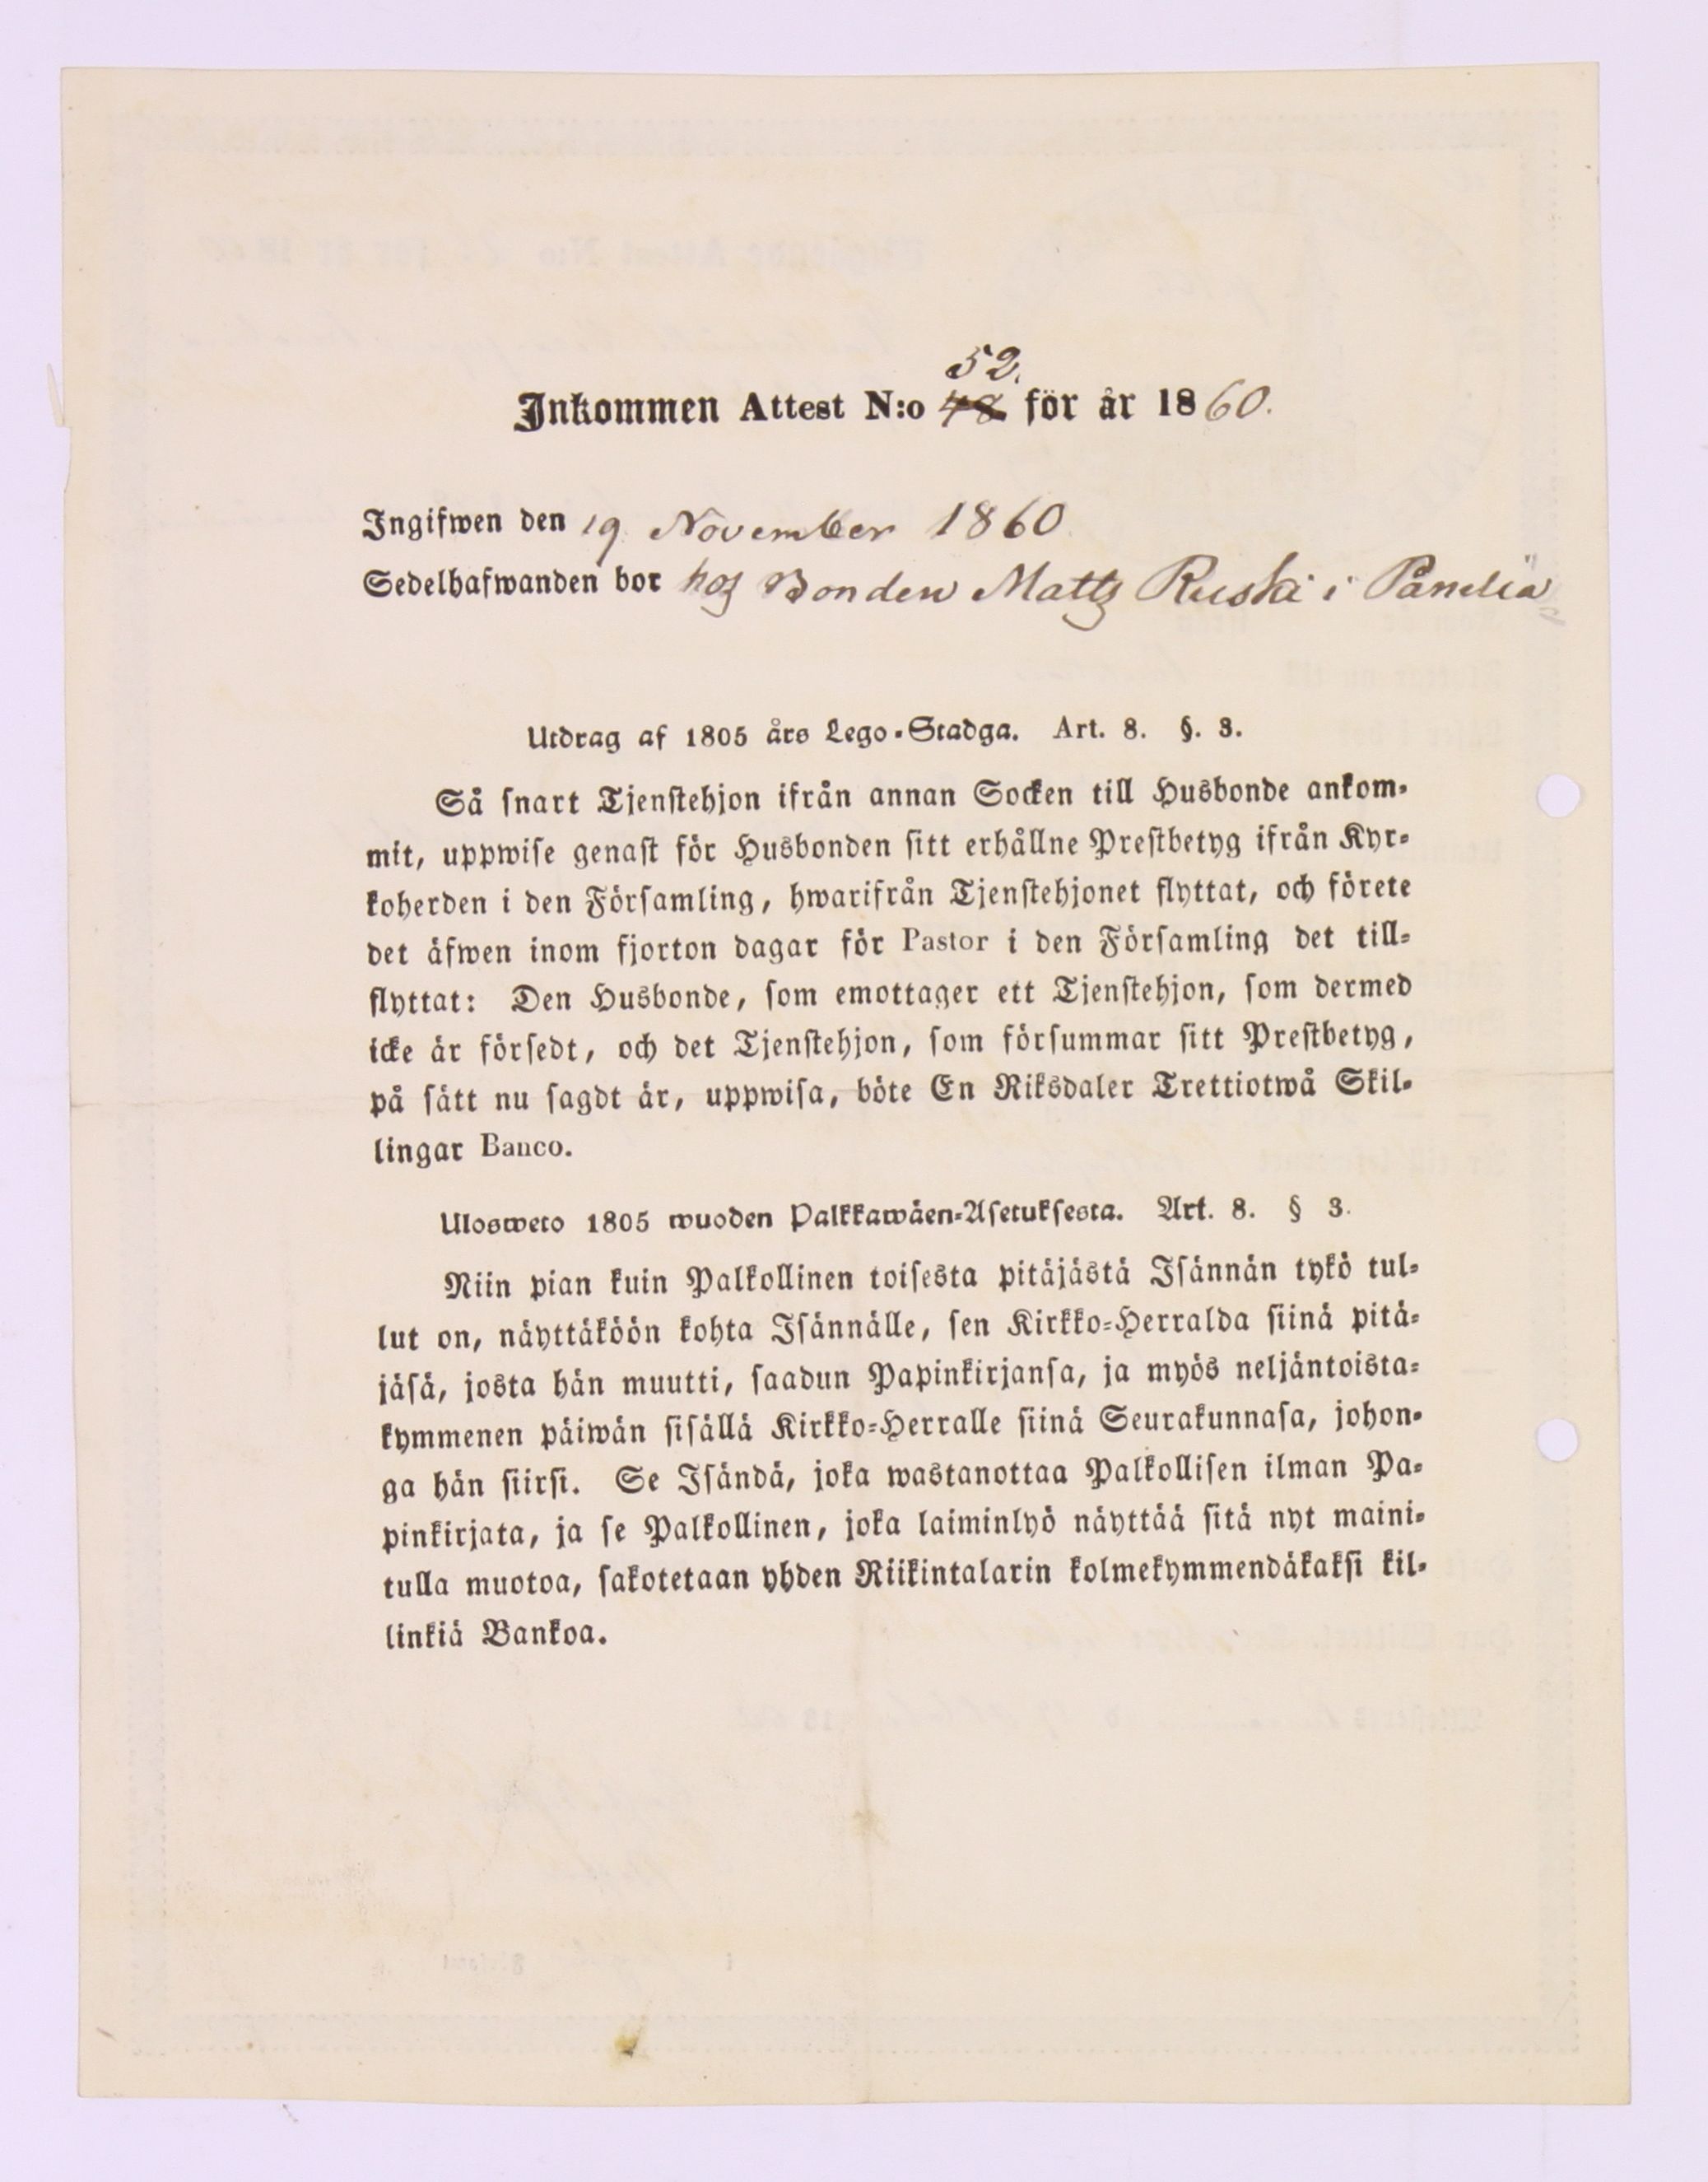 52.
Inkommen Attest N:o 48 för år 1860.
Ingifwen den 19 November 1860
Sedelhafwanden bor hos Bonden Matts Ruska i Paneliä
Utdrag af 1805 års Lego-Stadga. Art. 8. §. 3.
Så snart Tjenstehjon ifrån annan Socken till Husbonde ankom-
mit, uppwise genast för Husbonden sitt erhållne Prestbetyg ifrån Kyr-
koherden i den Församling, hwarifrån Tjenstehjonet flyttat, och förete
det äfwen inom fjorton dagar för Pastor i den Församling det till-
flyttat: Den Husbonde, som emottager ett Tjenstehjon, som dermed
icke är försedt, och det Tjenstehjon, som försummar sitt Prestbetyg,
på sätt nu sagdt är, uppwisa, böte En Riksdaler Trettiotwå Skil-
lingar Banco.
Ulosweto 1805 wuoden Palkkawäen-Asetuksesta. Art. 8. § 3.
Niin pian kuin Palkollinen toisesta pitäjästä Isännän tykö tul-
lut on, näyttäköön kohta Isännälle, sen Kirkko-Herralda siinä pitä-
jäsä, josta hän muutti, saadun Papinkirjansa, ja myös neljäntoista-
kymmenen päiwän sisällä Kirkko-Herralle siinä Seurakunnasa, johon-
ga hän siirsi. Se Isändä, joka wastanottaa Palkollisen ilman Pa-
pinkirjata, ja se Palkollinen, joka laiminlyö näyttää sitä nyt maini-
tulla muotoa, sakotetaan yhden Riikintalarin kolmekymmendäkaksi kil-
linkiä Bankoa.